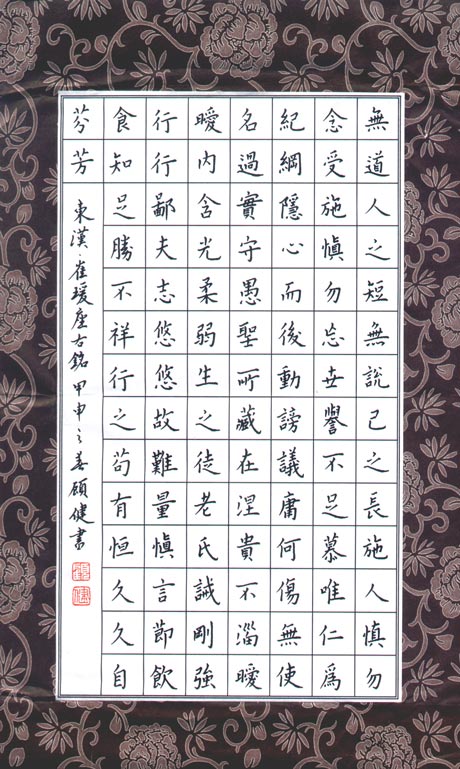 無道人之短無說己之長施人慎勿
念受施慎勿忘世譽不足慕唯仁爲
紀綱隱心而後動謗議庸何傷無使
名過實守愚聖所藏在涅貴不淄曖
曖內含光柔弱生之徒老氏誡剛強
行行鄙夫志悠悠故難量慎言節飲
食知足勝不祥行之苟有恒久久自
芬芳 東漢·崔瑗座右銘甲申之春顧健書